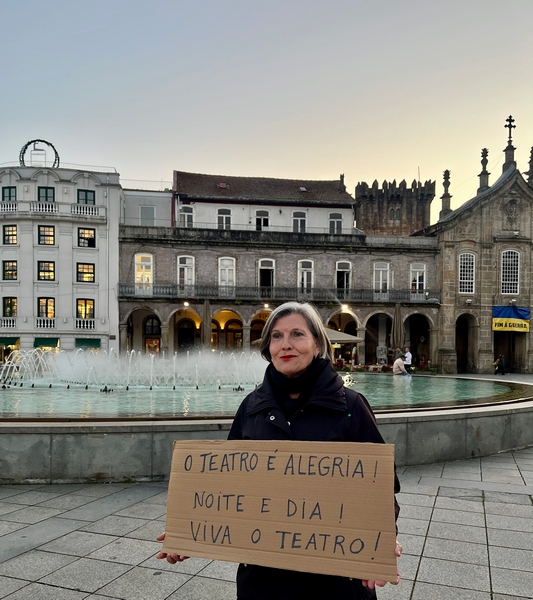 FIM À GUERRA
O TEATRO É ALEGRIA!
NOITE E DIA!
VIVA O TEATRO!